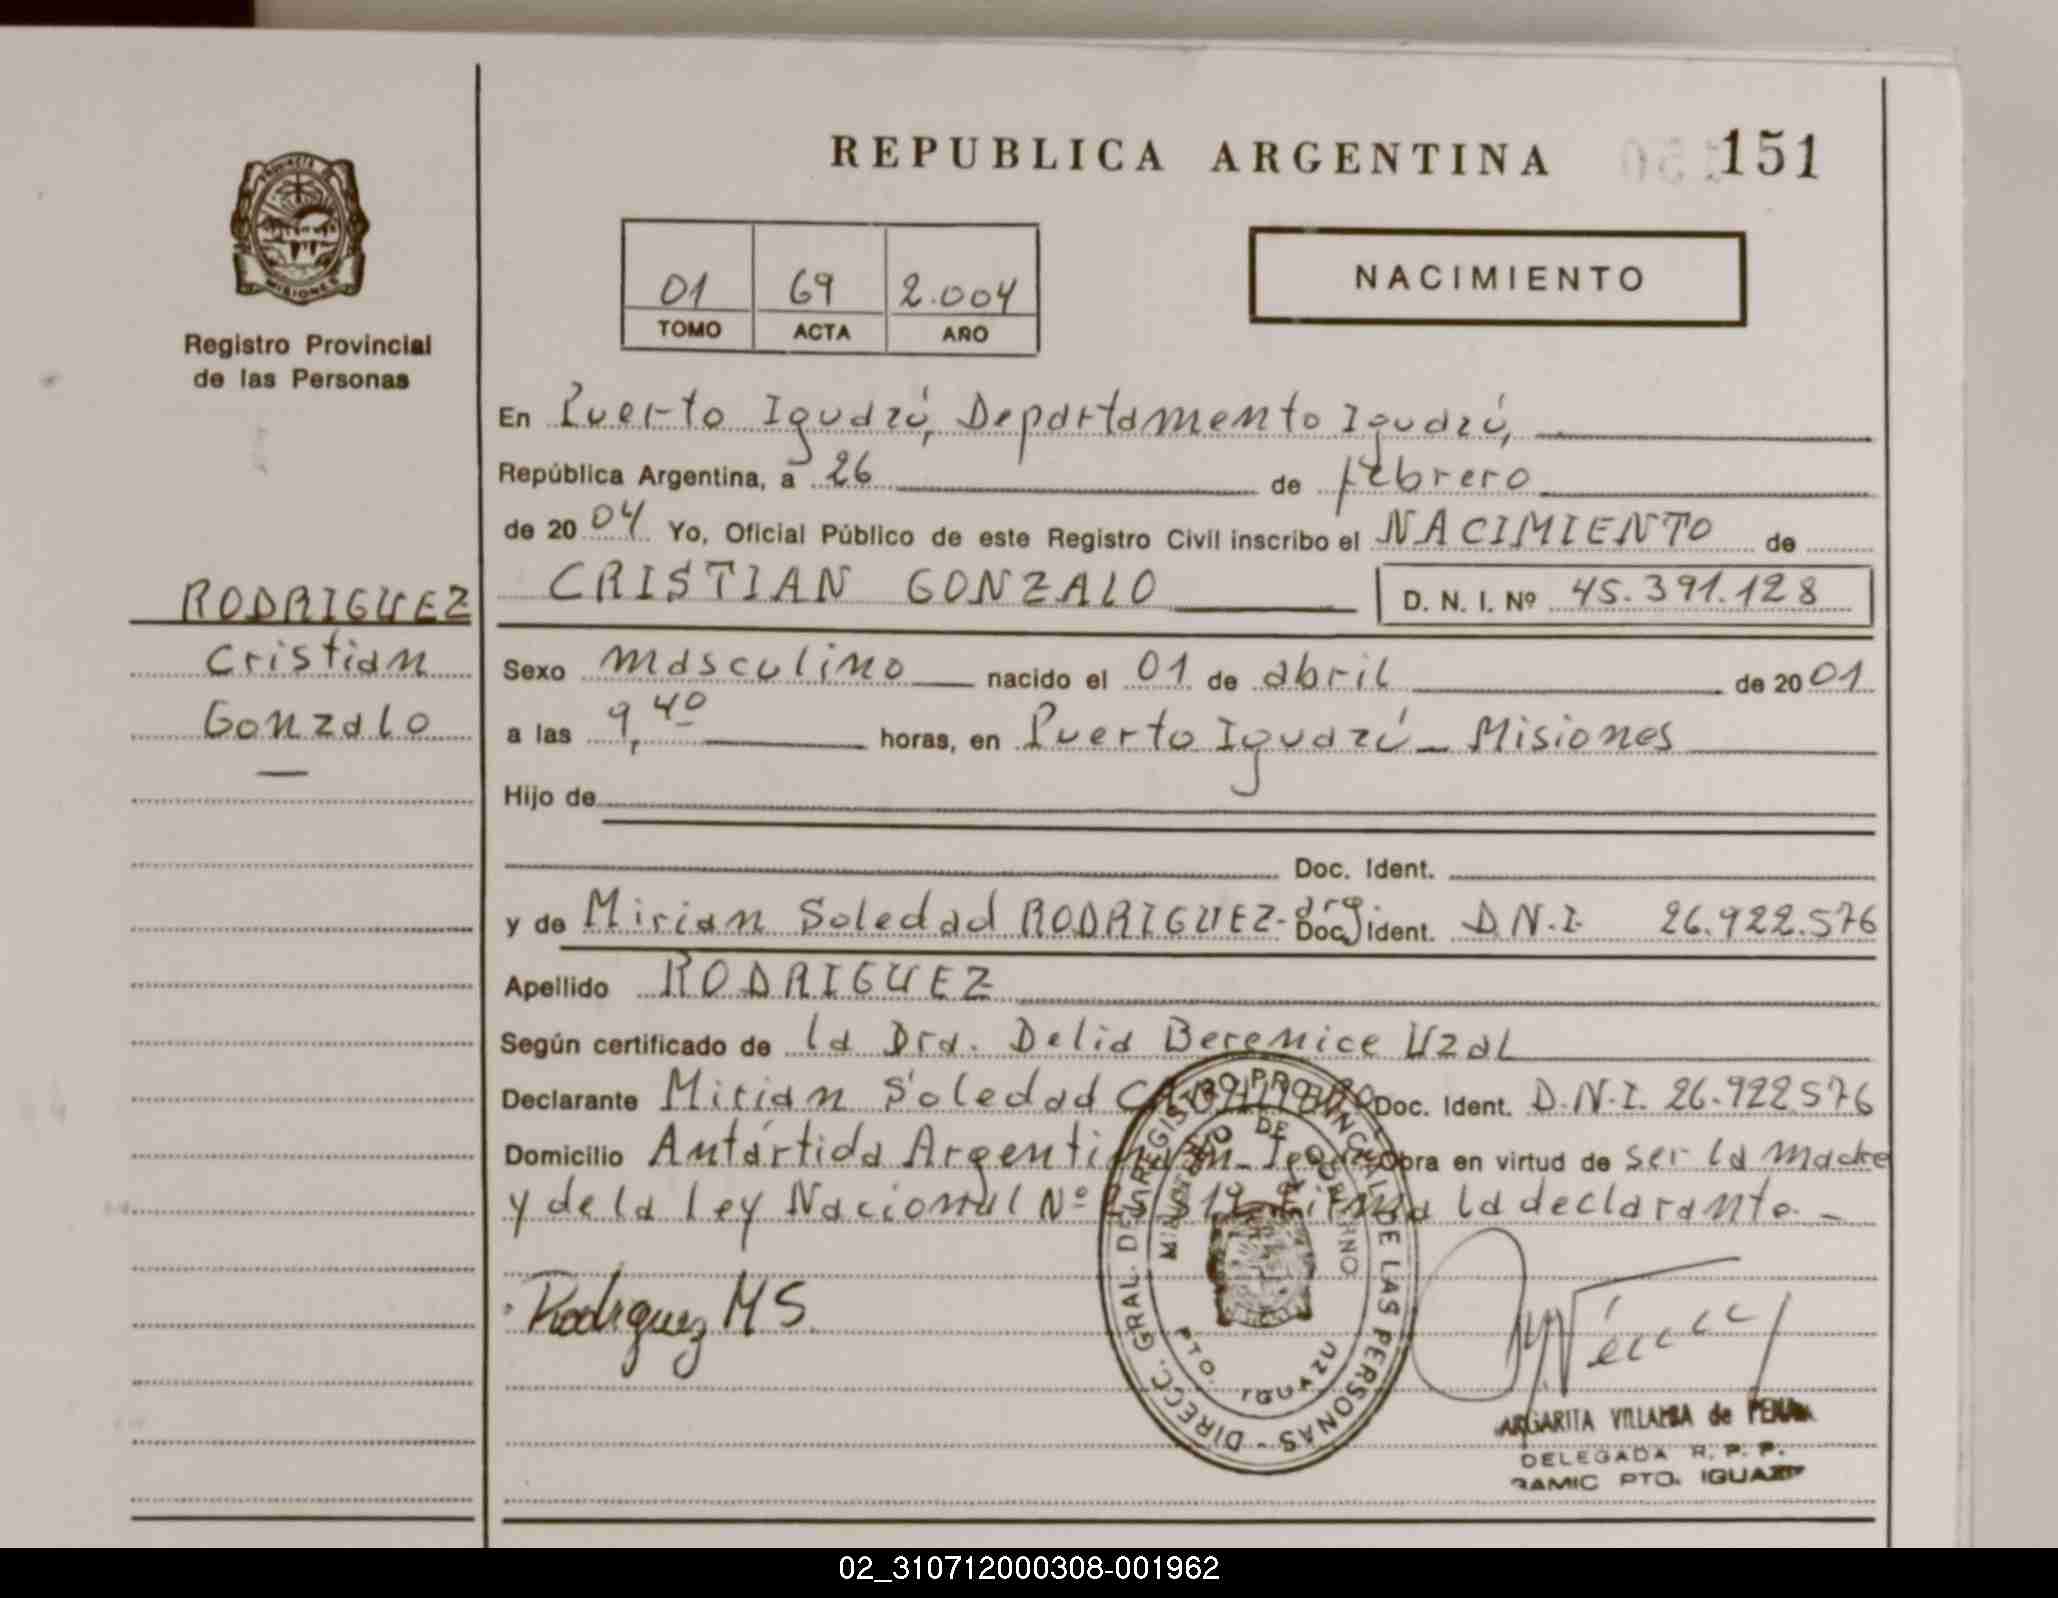 REPUBLICA ARGENTINA 151
PROVINCIA DE MISIONES
Registro Provincial
de las Personas
01 69 2.004
TOMO ACTA AÑO
NACIMIENTO
En Puerto Iguazú, Departamento Iguazú,
República Argentina, a 26 de febrero
de 2004 Yo, Oficial Público de este Registro Civil inscribo el NACIMIENTO de
CRISTIAN GONZALO D. N. I. Nº 45.391.128
RODRIGUEZ
Cristian
Gonzalo
Sexo masculino nacido el 01 de abril de 2001
a las 9,40 horas, en Puerto Iguazú - Misiones
Hijo de
Doc. Ident.
y de Mirian Soledad RODRIGUEZ - arg. Doc. Ident. D.N.I. 26.922.576
Apellido RODRIGUEZ
Según certificado de la Dra. Delia Berenice Uzal
Declarante Mirian Soledad Doc. Ident. D.N.I. 26.922.576
Domicilio Antártida Argentina Obra en virtud de ser la madre
y de la Ley Nacional Nº Firma la declarante. -
Rodriguez M S
DIRECC. GRAL. DEL REGISTRO PROVINCIAL DE LAS PERSONAS -
MINISTERIO DE GOBIERNO
PTO. IGUAZU
ARGARITA VILLALBA de PENA
DELEGADA R. P. P.
RAMIC PTO. IGUAZU
02_310712000308-001962